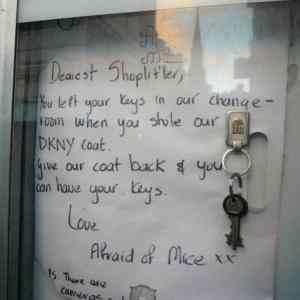 Dearest Shoplifter,
You left your keys in our change-
room when you stole our
DKNY coat.
Give our coat back & you
can have your keys.
Love
Afraid of Mice xx
Is There are
cameras